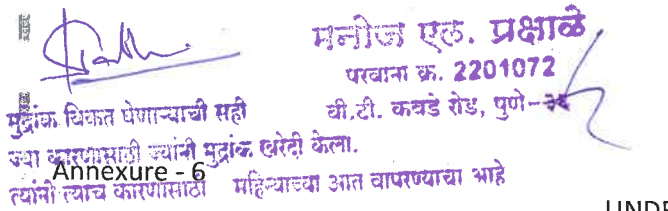 मनोज एल. प्रक्षाळे
परवाना क्र. 2201072
मुद्रांक विकत घेणाऱ्याची सही
वी.टी. कवडे रोड, पुणे-
ज्या कारणासाठी ज्यांनी मुद्रांक खरेदी केला.
Annexure - 6
त्यांनी त्याच कारणासाठी महिन्याच्या आत वापरण्याचा आहे
UNDE